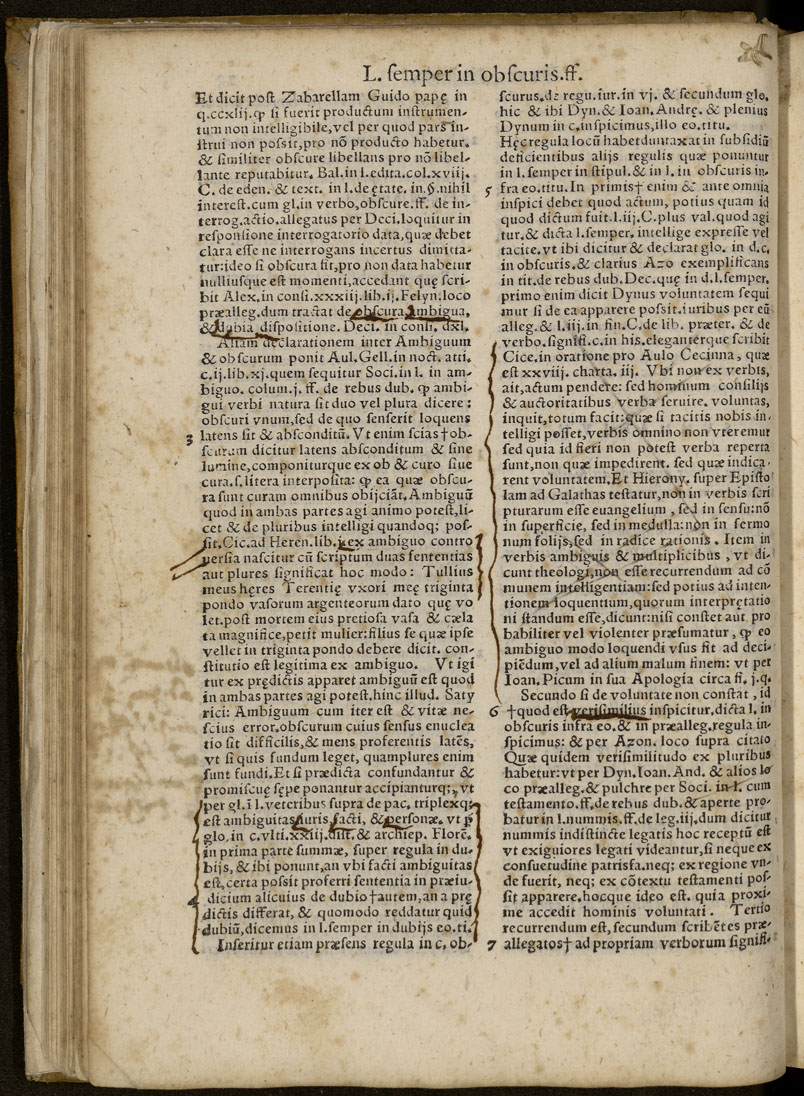 L. semper in obscuris.ff.
Et dicit post Zabarellam Guido papę in
q.ccxlij. ꝙ si fuerit productum instrumen-
tum non intelligibile, vel per quod pars in-
strui non possit, pro nō producto habetur.
& similiter obscure libellans pro nō libel-
lante reputabitur. Bal. in l. edita. col. xviij.
C. de eden. & text. in l. de ętate. in. §. nihil
interest. cum gl. in verbo, obscure. ff. de in-
terrog. actio. allegatus per Deci. loquitur in
responsione interrogatorio data, quæ debet
clara esse ne interrogans incertus dimitta-
tur: ideo si obscura sit, pro non data habetur
nulliusque est momenti, accedant quę scri-
bit Alex. in consi. xxxiij. lib. ij. Felyn. loco
præalleg. dum tractat de obscura, ambigua,
& dubia dispositione. Deci. in consi. dxl.
Aliam declarationem inter Ambiguum
& obscurum ponit Aul. Gell. in noct. atti.
c. ij. lib. xj. quem sequitur Soci. in l. in am-
biguo. colum. j. ff. de rebus dub. ꝙ ambi-
gui verbi natura sit duo vel plura dicere:
obscuri vnum, sed de quo senserit loquens
3 latens sit & absconditū. Vt enim scias † ob-
scurum dicitur latens absconditum & sine
lumine, componiturque ex ob & curo siue
cura. s. litera interposita: ꝙ ea quæ obscu-
ra sunt curam omnibus obijciāt. Ambiguū
quod in ambas partes agi animo potest, li-
cet & de pluribus intelligi quandoq; pos-
sit. Cic. ad Heren. lib. j. ex ambiguo contro
versia nascitur cū scriptum duas sententias
aut plures significat hoc modo: Tullius
meus hęres Terentię vxori meę triginta
pondo vasorum argenteorum dato quę vo
let. post mortem eius pretiosa vasa & cæla
ta magnifice, petit mulier: filius se quæ ipse
vellet in triginta pondo debere dicit. con-
stitutio est legitima ex ambiguo. Vt igi
tur ex prędictis apparet ambiguū est quod
in ambas partes agi potest. hinc illud. Saty
rici: Ambiguum cum iter est & vitæ ne-
scius error. obscurum cuius sensus enuclea
tio sit difficilis, & mens proferentis latēs,
vt si quis fundum leget, quamplures enim
sunt fundi. Et si prædicta confundantur &
promiscuę sępe ponantur accipianturq;, vt
per gl. ī l. veteribus supra de pac. triplexq;
est ambiguitas iuris, facti, & personæ. vt ꝑ
glo. in c. vlti. xxiij. dist. & archiep. Florē.
in prima parte summæ, super regula in du-
bijs, & ibi ponunt, an vbi facti ambiguitas
est, certa possit proferri sententia in præiu-
4 dicium alicuius de dubio † autem, an a prę
dictis differat, & quomodo reddatur quid
dubiū, dicemus in l. semper in dubijs eo. ti.
Inseritur etiam præsens regula in c. ob-
scurus. de regu. iur. in vj. & secundum glo.
hic & ibi Dyn. & Ioan. Andrę. & plenius
Dynum in c. inspicimus, illo eo. titu.
Hęc regula locū habet duntaxat in subsidiū
deficientibus alijs regulis quæ ponuntur
in l. semper in stipul. & in l. in obscuris in-
5 fra eo. titu. In primis † enim & ante omnia
inspici debet quod actum, potius quam id
quod dictum fuit. l. iij. C. plus val. quod agi
tur. & dicta l. semper, intellige expresse vel
tacite. vt ibi dicitur & declarat glo. in d. c.
in obscuris. & clarius Azo exemplificans
in tit. de rebus dub. Dec. quę in d. l. semper.
primo enim dicit Dynus voluntatem sequi
mur si de ea apparere possit. iuribus per eū
alleg. & l. iij. in fin. C. de lib. præter. & de
verbo. signifi. c. in his. eleganterque scribit
Cice. in oratione pro Aulo Cecinna, quæ
est xxviij. charta. iij. Vbi non ex verbis,
ait, actum pendere: sed hominum consilijs
& auctoritatibus verba seruire. voluntas,
inquit, totum facit: quæ si tacitis nobis in-
telligi posset, verbis omnino non vteremur
sed quia id fieri non potest verba reperta
sunt, non quæ impedirent. sed quæ indica-
rent voluntatem. Et Hierony. super Episto
lam ad Galathas testatur, non in verbis scri
pturarum esse euangelium, sed in sensu: nō
in superficie, sed in medulla: non in sermo
num folijs, sed in radice rationis. Item in
verbis ambiguis & multiplicibus, vt di-
cunt theologi, non esse recurrendum ad cō
munem intelligentiam: sed potius ad inten-
tionem loquentium, quorum interpretatio
ni standum esse, dicunt: nisi constet aut pro
babiliter vel violenter præsumatur, ꝙ eo
ambiguo modo loquendi vsus sit ad deci-
piēdum, vel ad alium malum finem: vt per
Ioan. Picum in sua Apologia circa fi. j. q.
Secundo si de voluntate non constat, id
6 † quod est verisimilius inspicitur. dicta l. in
obscuris infra eo. & in præalleg. regula in-
spicimus: & per Azon. loco supra citato
Quæ quidem verisimilitudo ex pluribus
habetur: vt per Dyn. Ioan. And. & alios lo
co præalleg. & pulchre per Soci. in l. cum
testamento. ff. de rebus dub. & aperte pro-
batur in l. nummis. ff. de leg. iij. dum dicitur
nummis indistincte legatis hoc receptū est
vt exiguiores legati videantur, si neque ex
consuetudine patrisfa. neq; ex regione vn-
de fuerit, neq; ex cōtextu testamenti pos-
sit apparere. hocque ideo est. quia proxi-
me accedit hominis voluntati. Tertio
recurrendum est, secundum scribētes præ-
7 allegatos † ad propriam verborum signifi-